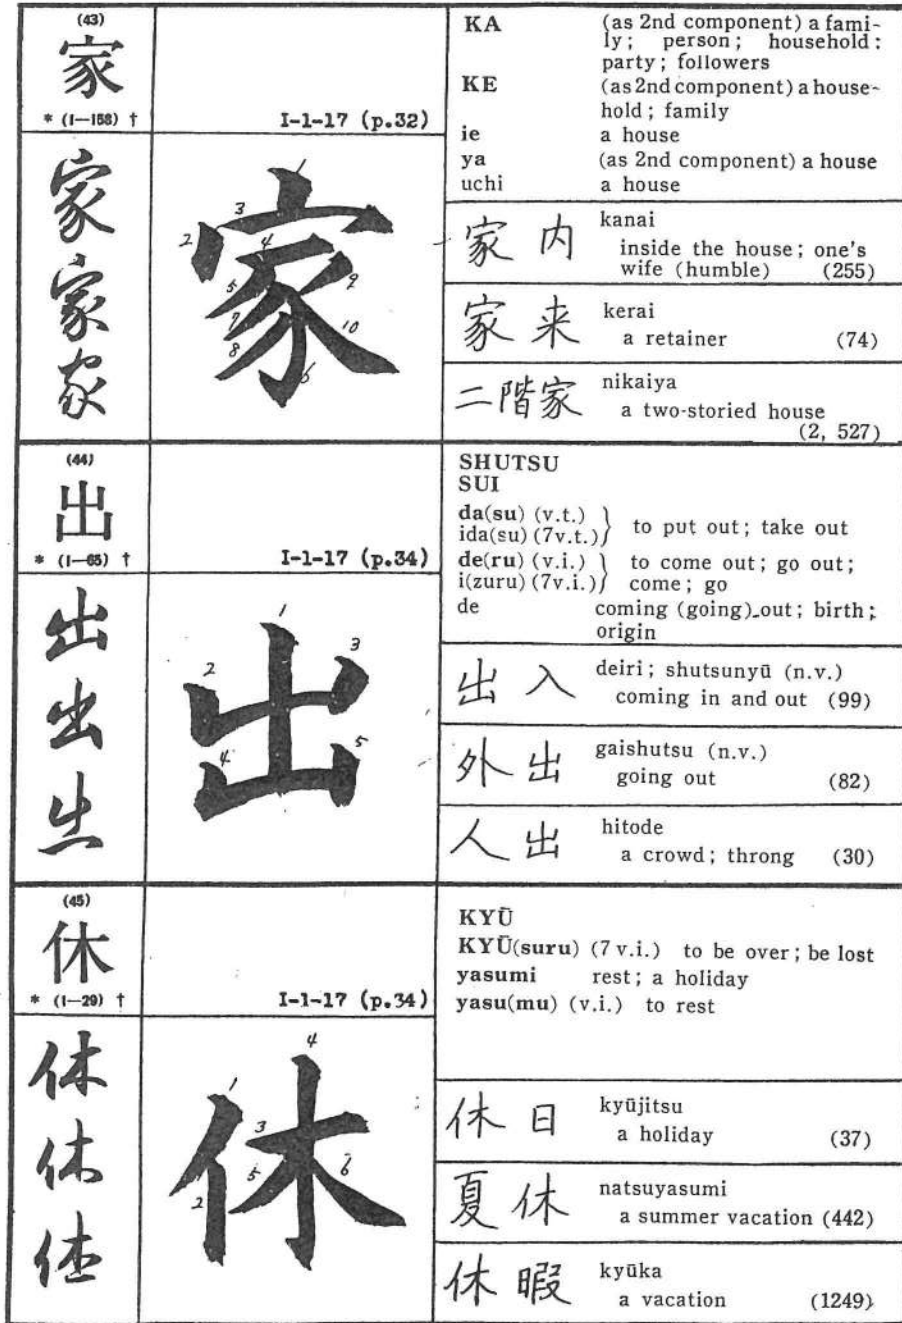 (43)
家
* (1—158) †
I-1-17 (p.32)
家
家
家
家
1
2
3
4
5
6
7
8
9
10
KA (as 2nd component) a fami-
ly; person; household:
party; followers
KE (as 2nd component) a house-
hold; family
ie a house
ya (as 2nd component) a house
uchi a house
家内 kanai
inside the house; one's
wife (humble) (255)
家来 kerai
a retainer (74)
二階家 nikaiya
a two-storied house
(2, 527)
(44)
出
* (1—65) †
I-1-17 (p.34)
出
出
出
出
1
2
3
4
5
SHUTSU
SUI
da(su) (v.t.)
ida(su) (7v.t.) to put out; take out
de(ru) (v.i.) to come out; go out;
i(zuru) (7v.i.) come; go
de coming (going) out; birth;
origin
出入 deiri; shutsunyū (n.v.)
coming in and out (99)
外出 gaishutsu (n.v.)
going out (82)
人出 hitode
a crowd; throng (30)
(45)
休
* (1—29) †
I-1-17 (p.34)
休
休
休
休
1
2
3
4
5
6
KYŪ
KYŪ(suru) (7 v.i.) to be over; be lost
yasumi rest; a holiday
yasu(mu) (v.i.) to rest
休日 kyūjitsu
a holiday (37)
夏休 natsuyasumi
a summer vacation (442)
休暇 kyūka
a vacation (1249)